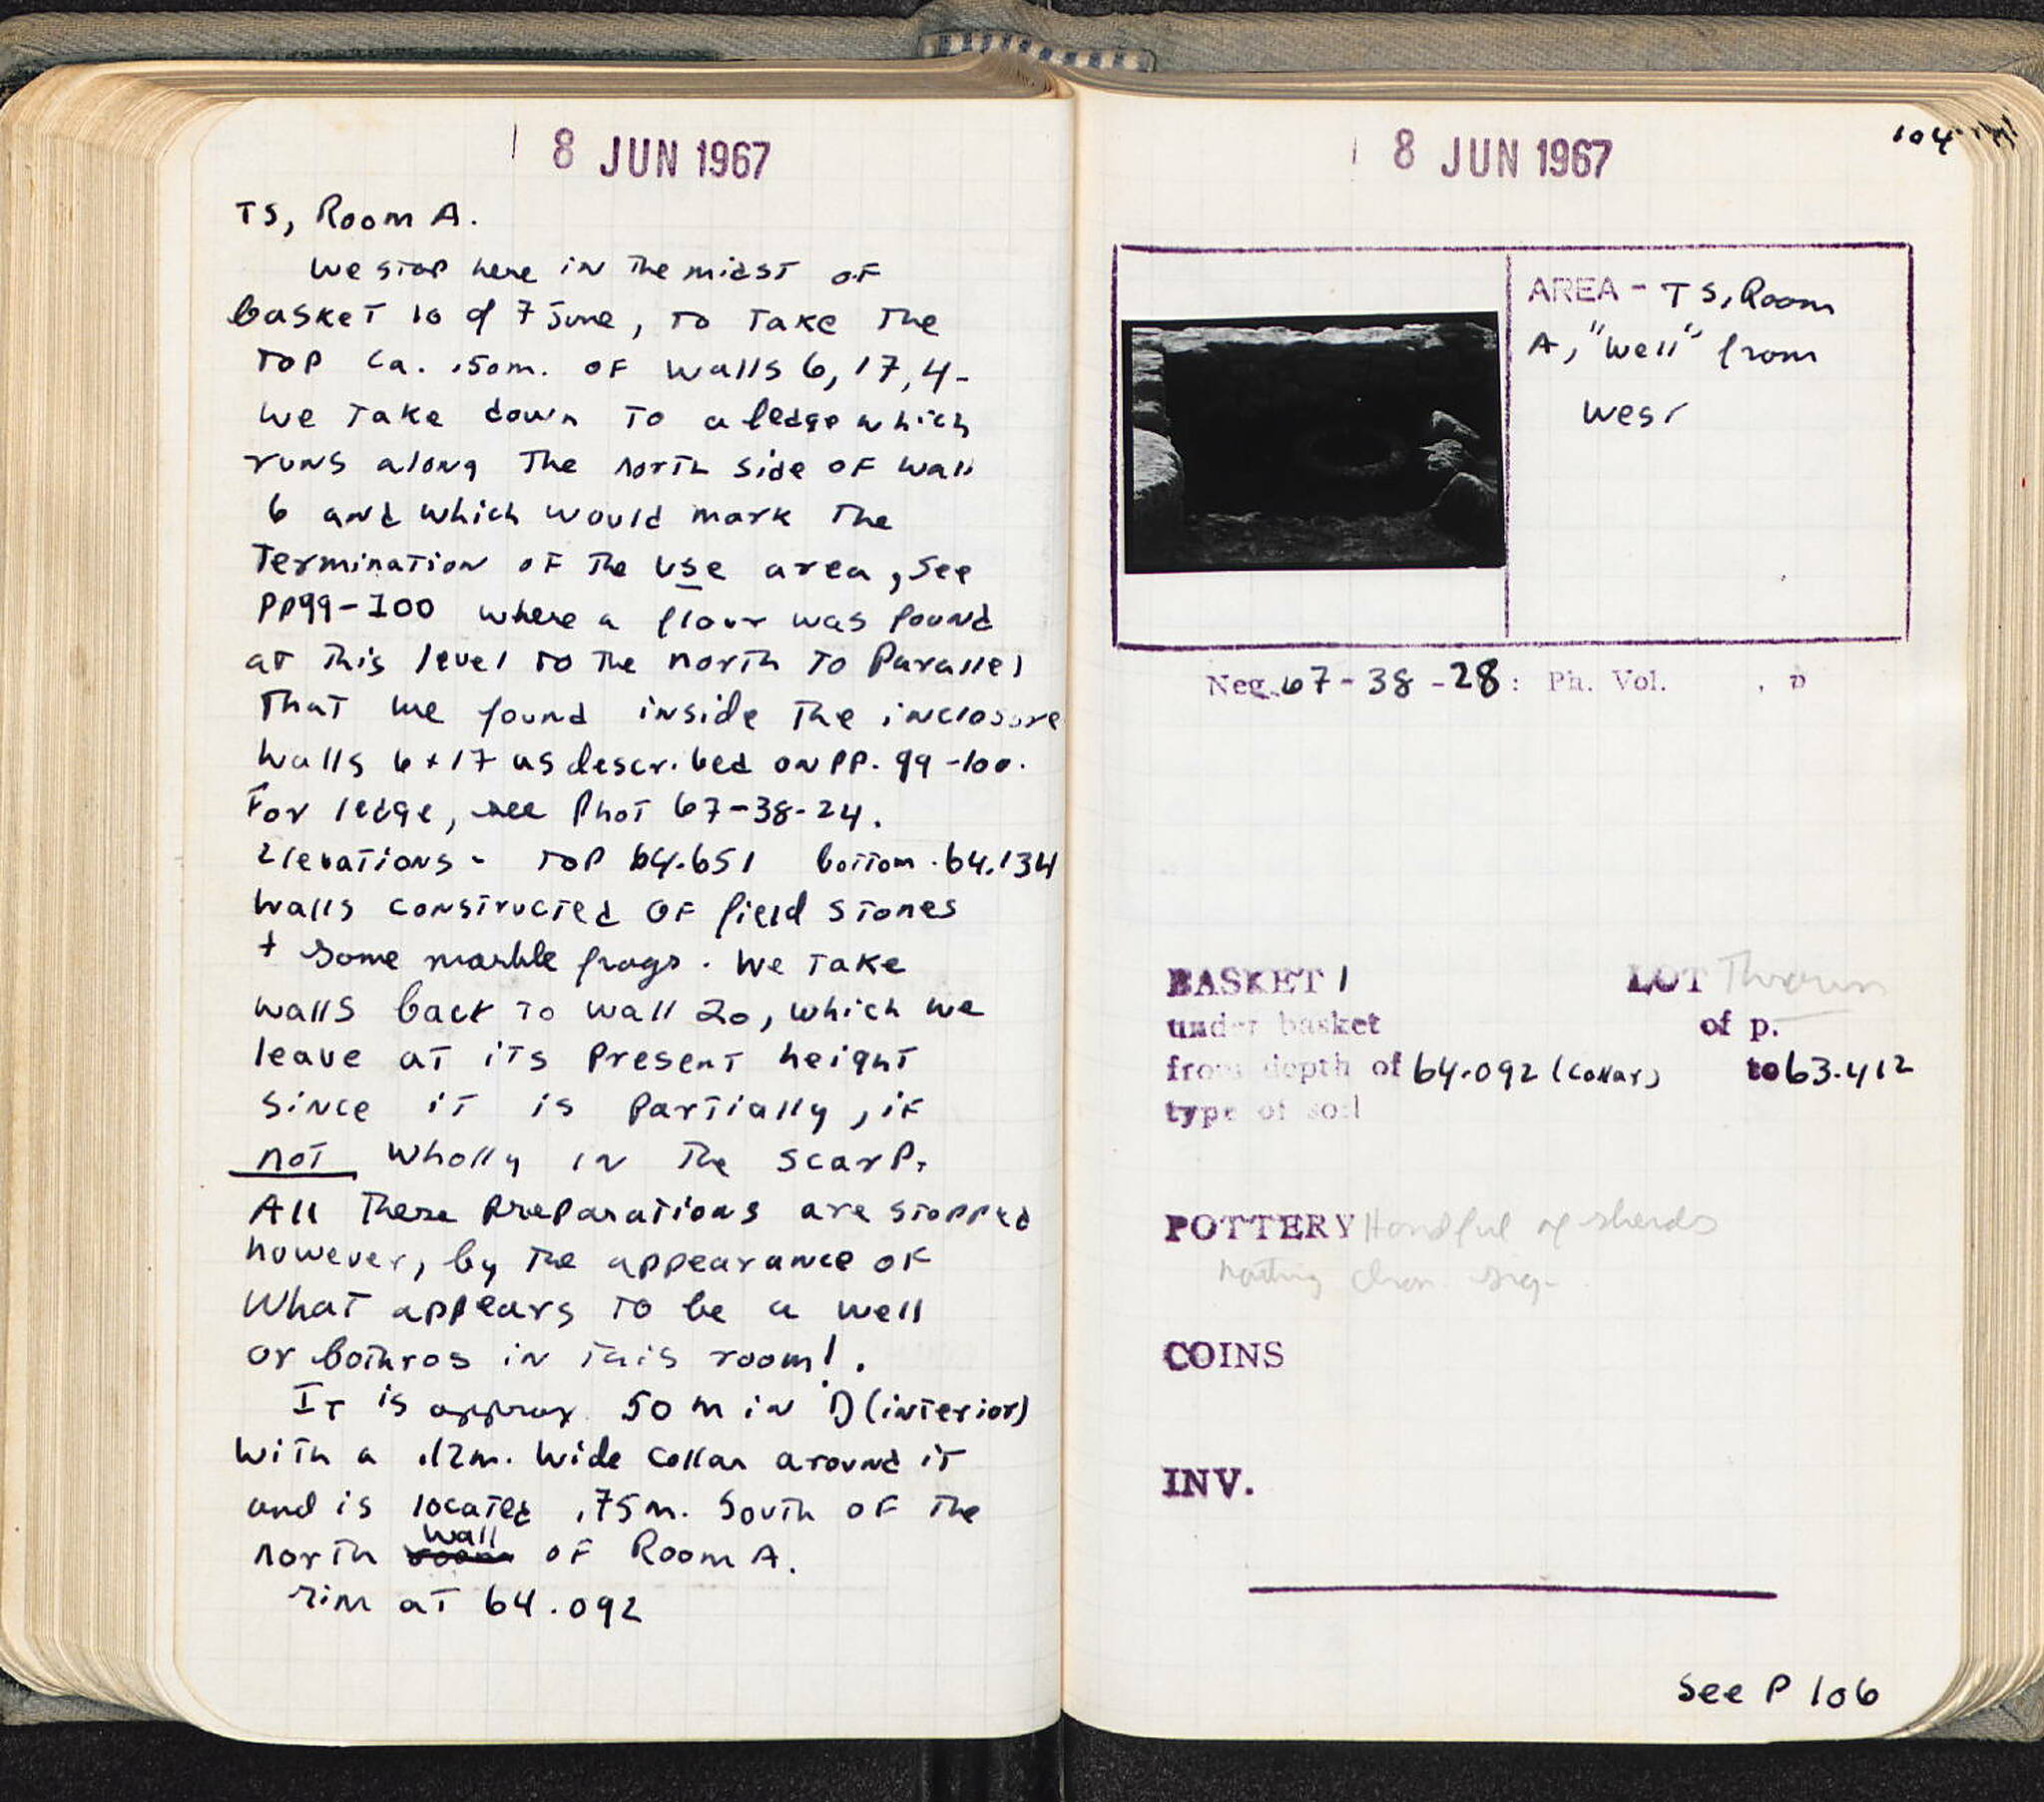 8 JUN 1967
TS, Room A.
We stop here in the midst of
basket 10 of 7 June, to take the
top ca. .50m. of walls 6, 17, 4-
We take down to a ledge which
runs along the north side of wall
6 and which would mark the
termination of the use area, see
pp99-100 where a floor was found
at this level to the north to parallel
that we found inside the inclosure
walls 6+17 as described on pp. 99-100.
For ledge, see Phot 67-38-24.
Elevations - top 64.651 bottom .64.134
Walls constructed of field stones
+ some marble frags. We take
walls back to wall 20, which we
leave at its present height
since it is partially, if
not wholly in the scarp.
All these preparations are stopped
however, by the appearance of
what appears to be a well
or bothros in this room!.
It is approx. 50 m in D (interior)
with a .12m. wide collar around it
and is located .75m. south of the
wall
north room of Room A.
rim at 64.092
8 JUN 1967
104
AREA - TS, Room
A, "Well" from
West
Neg. 67-38-28: Ph. Vol. , p
BASKET 1 LOT Thrown
under basket of p.
from depth of 64.092 (collar) to 63.412
type of soil
POTTERY Handful of sherds
nothing chron. sig.
COINS
INV.
See P 106